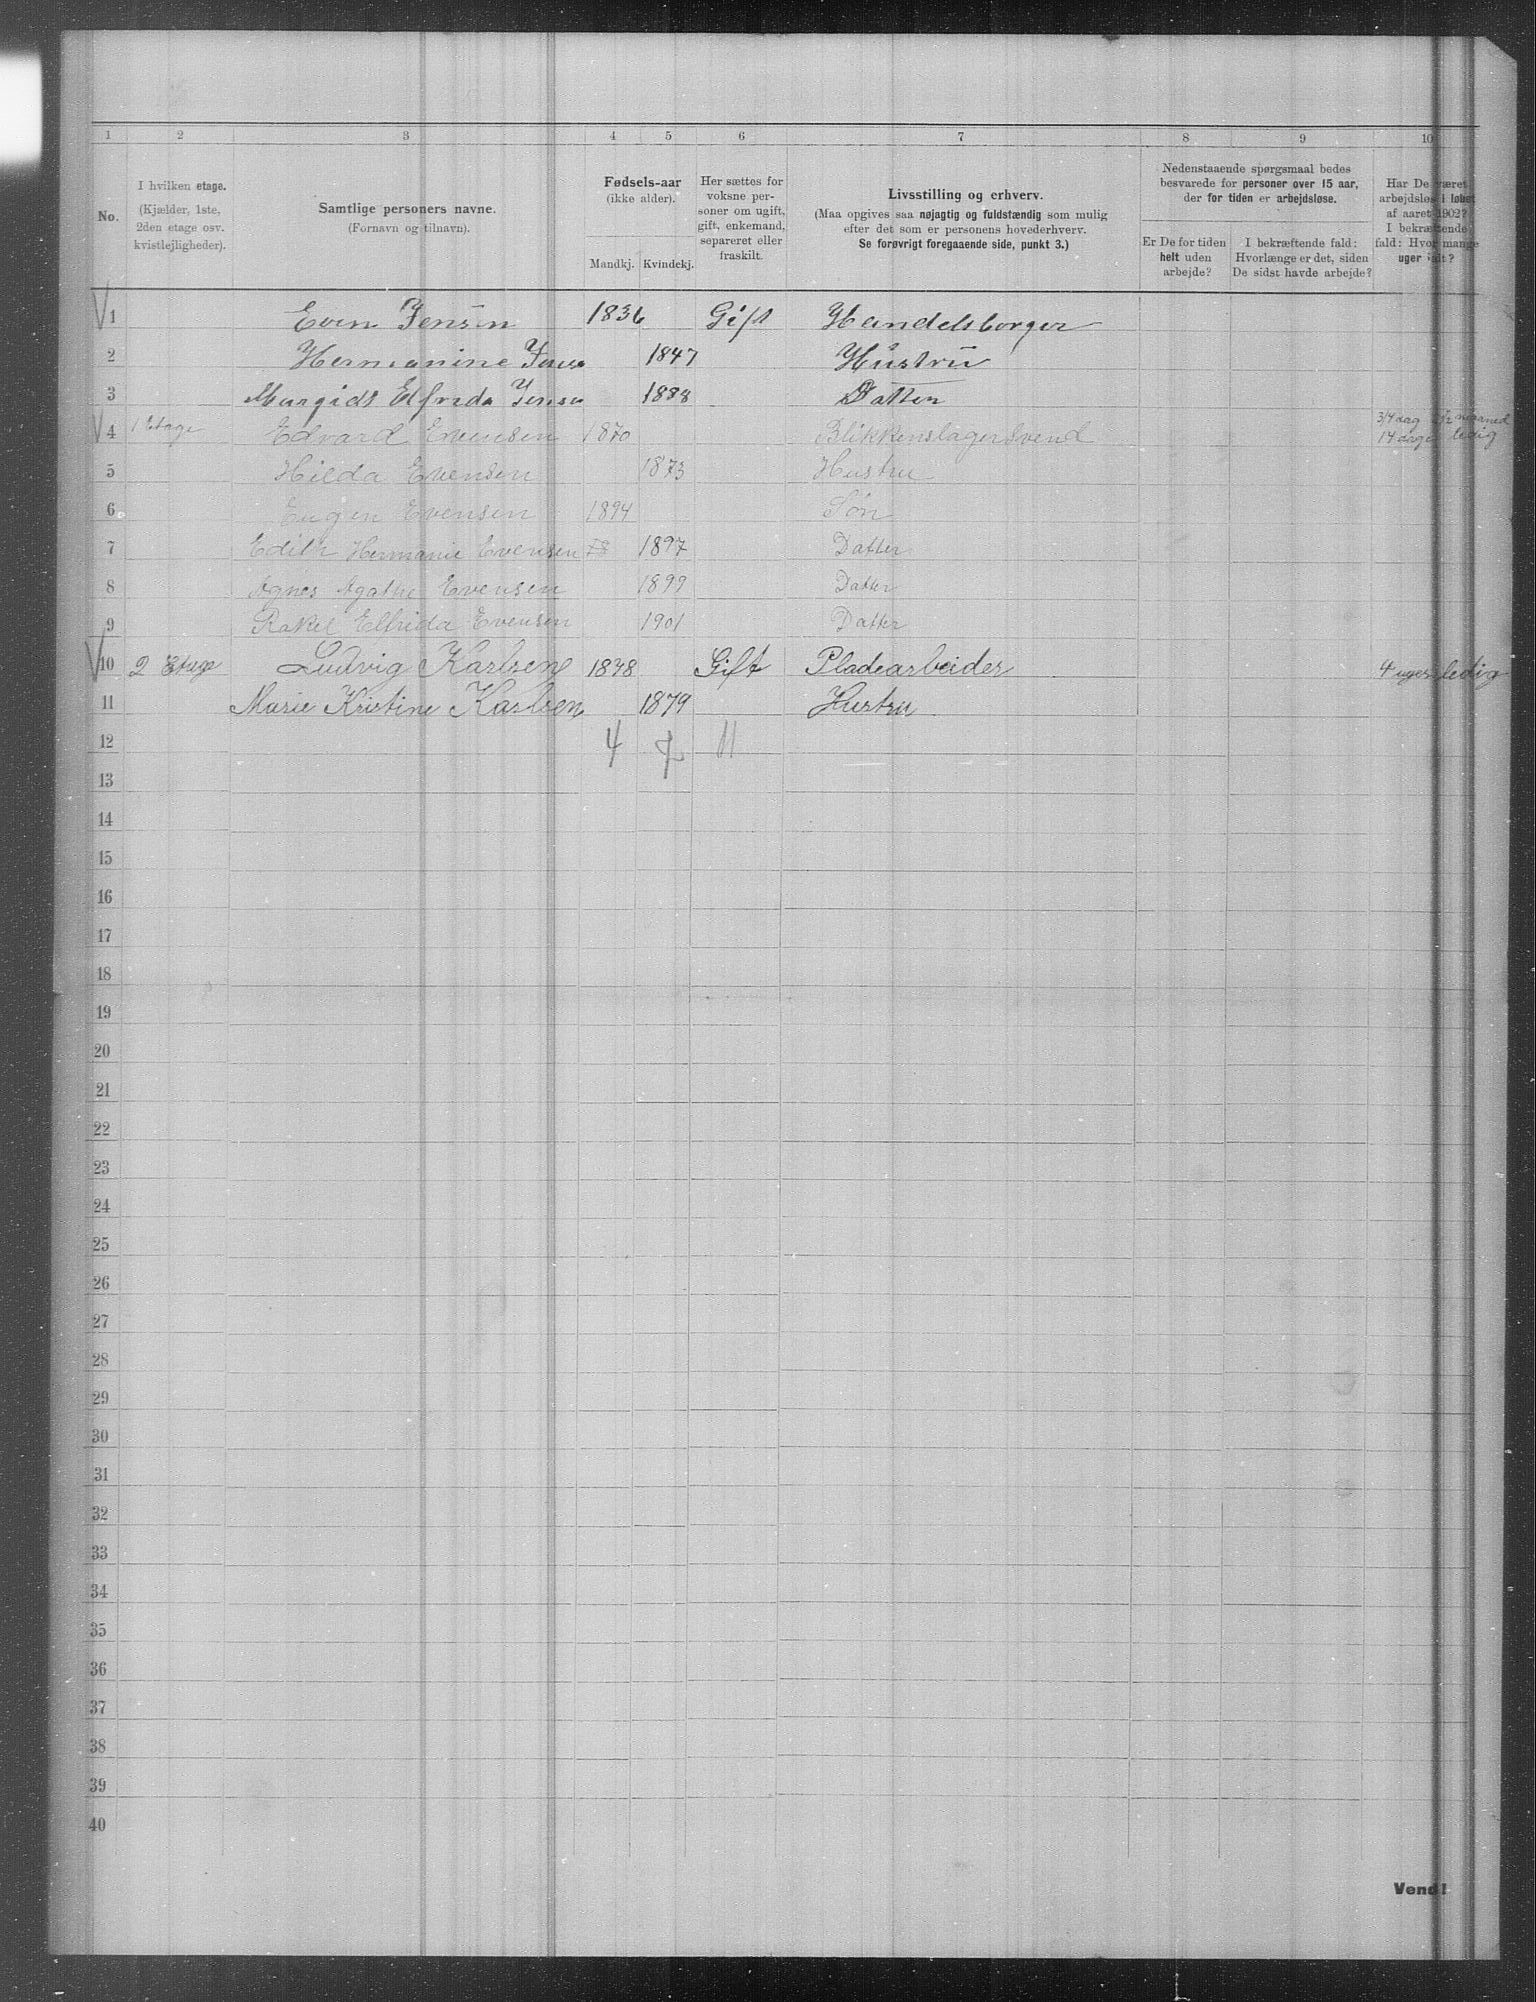 1 2 3 4 5 6 7 8 9 10
No.
I hvilken etage.
(Kjælder, 1ste,
2den etage osv.
kvistlejligheder).
Samtlige personers navne.
(Fornavn og tilnavn).
Fødsels-aar
(ikke alder).
Mandkj. Kvindekj.
Her sættes for
voksne per-
soner om ugift,
gift, enkemand,
separeret eller
fraskilt.
Livsstilling og erhverv.
(Maa opgives saa nøjagtig og fuldstændig som mulig
efter det som er personens hovederhverv.
Se forøvrigt foregaaende side, punkt 3.)
Nedenstaaende spørgsmaal bedes
besvarede for personer over 15 aar,
der for tiden er arbejdsløse.
Er De for tiden
helt uden
arbejde?
I bekræftende fald:
Hvorlænge er det, siden
De sidst havde arbejde?
Har De været
arbejdsløs i løbet
af aaret 1902?
I bekræftende
fald: Hvor mange
uger ialt?
1 Even Jensen 1836 Gift Handelsborger
2 Hermanine Jense 1847 Hustru
3 Margidt Elfrida Jense 1888 Datter
4 1 Etage Edvard Evensen 1870 Blikkenslagersvend 3/4 dag maaned
14 dage ledig
5 Hilda Evensen 1873 Hustru
6 Eugen Evensen 1894 Søn
7 Edith Hermanie Evensen 18 1897 Datter
8 Agnes Agathe Evensen 1899 Datter
9 Rakel Elfrida Evensen 1901 Datter
10 2 Etage Ludvig Karlsen 1878 Gift Pladearbeider 4 uger ledig
11 Marie Kristine Karlsen 1879 Hustru
12 4 7 11
13
14
15
16
17
18
19
20
21
22
23
24
25
26
27
28
29
30
31
32
33
34
35
36
37
38
39
40
Vend!